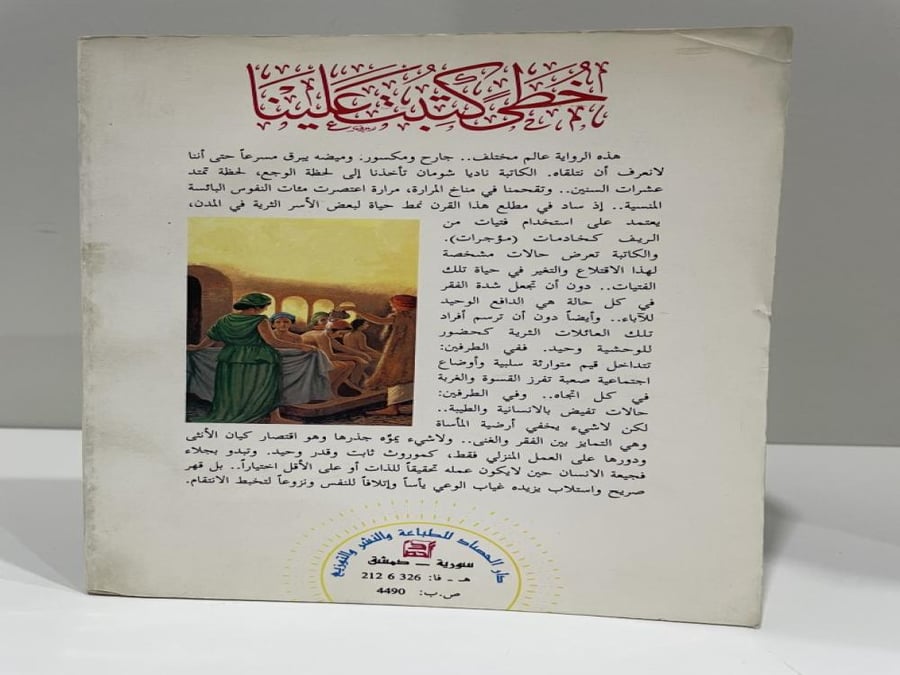 خطى كتبت علينا
هذه الرواية عالم مختلف.. جارح ومكسور. وميضه يبرق مسرعاً حتى أننا
لانعرف أن نتلقاه. الكاتبة ناديا شومان تأخذنا إلى لحظة الوجع، لحظة تمتد
عشرات السنين.. وتقحمنا في مناخ المرارة، مرارة اعتصرت مئات النفوس البائسة
المنسية.. إذ ساد في مطلع هذا القرن نمط حياة لبعض الأسر الثرية في المدن،
يعتمد على استخدام فتيات من
الريف كخادمات (مؤجرات).
والكاتبة تعرض حالات مشخصة
لهذا الاقتلاع والتغير في حياة تلك
الفتيات.. دون أن تجعل شدة الفقر
في كل حالة هي الدافع الوحيد
للآباء.. وأيضاً دون أن ترسم أفراد
تلك العائلات الثرية كحضور
للوحشية وحيد. ففي الطرفين:
تتداخل قيم متوارثة سلبية وأوضاع
اجتماعية صعبة تفرز القسوة والغربة
في كل اتجاه.. وفي الطرفين:
حالات تفيض بالانسانية والطيبة..
لكن لاشيء يخفي أرضية المأساة
وهي التمايز بين الفقر والغنى.. ولاشيء يموّه جذرها وهو اقتصار كيان الأنثى
ودورها على العمل المنزلي فقط، كموروث ثابت وقدر وحيد. وتبدو بجلاء
فجيعة الانسان حين لايكون عمله تحقيقاً للذات أو على الأقل اختياراً.. بل قهر
صريح واستلاب يزيده غياب الوعي يأساً وإتلافاً للنفس ونزوعاً لتخبط الانتقام.
دار الحصاد للطباعة والنشر والتوزيع
سورية – دمشق
هـ - فا: 326 6 212
ص.ب: 4490